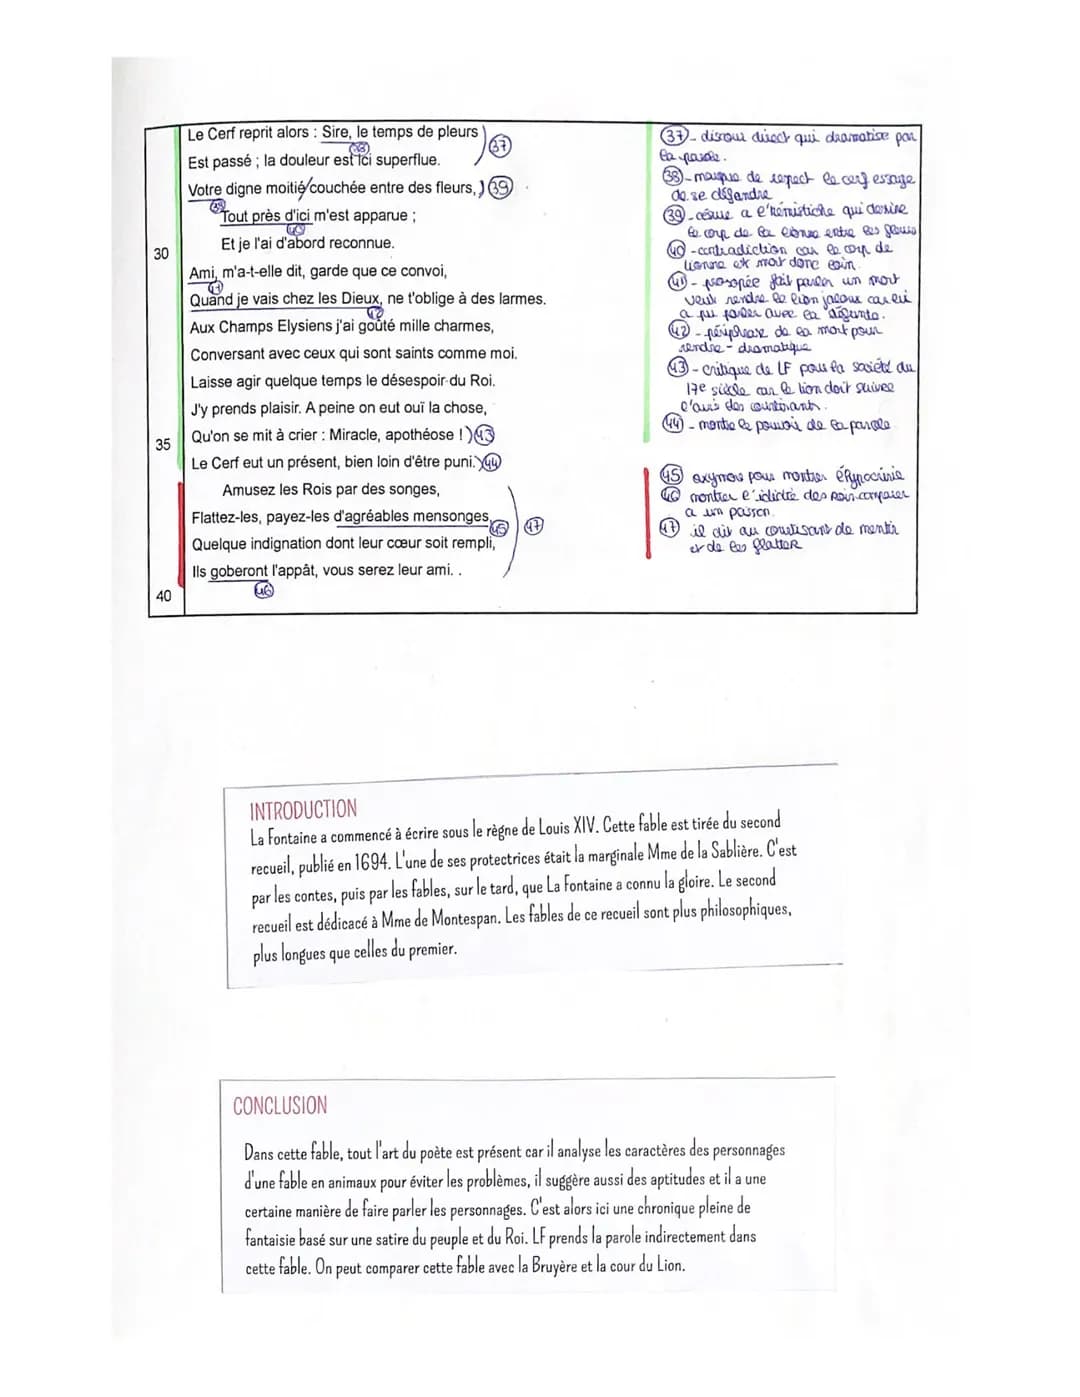 Le Cerf reprit alors : Sire, le temps de pleurs
37
38
Est passé ; la douleur est ici superflue.
Votre digne moitié/couchée entre des fleurs,
39
39
Tout près d'ici m'est apparue ;
40
Et je l'ai d'abord reconnue.
30
Ami, m'a-t-elle dit, garde que ce convoi,
41
Quand je vais chez les Dieux, ne t'oblige à des larmes.
42
Aux Champs Elysiens j'ai goûté mille charmes,
Conversant avec ceux qui sont saints comme moi.
Laisse agir quelque temps le désespoir du Roi.
J'y prends plaisir. A peine on eut ouï la chose,
35
Qu'on se mit à crier : Miracle, apothéose !
43
Le Cerf eut un présent, bien loin d'être puni.
44
Amusez les Rois par des songes,
Flattez-les, payez-les d'agréables mensonges,
45
47
Quelque indignation dont leur cœur soit rempli,
Ils goberont l'appât, vous serez leur ami. .
46
40
37 - discour direct qui dramatise par
la parole.
38 - marque de respect le cerf essaye
de se défandre
39 - césure a l'hémistiche qui dessine
le corp de la lionne entre les fleurs
40 - contradiction car le corp de
lionne est mort donc loin.
41 - prosopée fait parler un mort
veut rendre le lion jaloux car lui
a pu parler avec la défunte.
42 - périphrase de la mort pour
rendre - dramatique
43 - critique de LF pour la société du
17e siècle car le lion doit suivre
l'avis des courtisants.
44 - montre le pouvoir de la parole
45 oxymore pour montrer l'hypocrisie
46 montrer l'idiotie des Rois comparer
a un poisson.
47 il dit au courtisant de mentir
et de les flatter
INTRODUCTION
La Fontaine a commencé à écrire sous le règne de Louis XIV. Cette fable est tirée du second
recueil, publié en 1694. L'une de ses protectrices était la marginale Mme de la Sablière. C'est
par les contes, puis par les fables, sur le tard, que La Fontaine a connu la gloire. Le second
recueil est dédicacé à Mme de Montespan. Les fables de ce recueil sont plus philosophiques,
plus longues que celles du premier.
CONCLUSION
Dans cette fable, tout l'art du poète est présent car il analyse les caractères des personnages
d'une fable en animaux pour éviter les problèmes, il suggère aussi des aptitudes et il a une
certaine manière de faire parler les personnages. C'est alors ici une chronique pleine de
fantaisie basé sur une satire du peuple et du Roi. LF prends la parole indirectement dans
cette fable. On peut comparer cette fable avec la Bruyère et la cour du Lion.